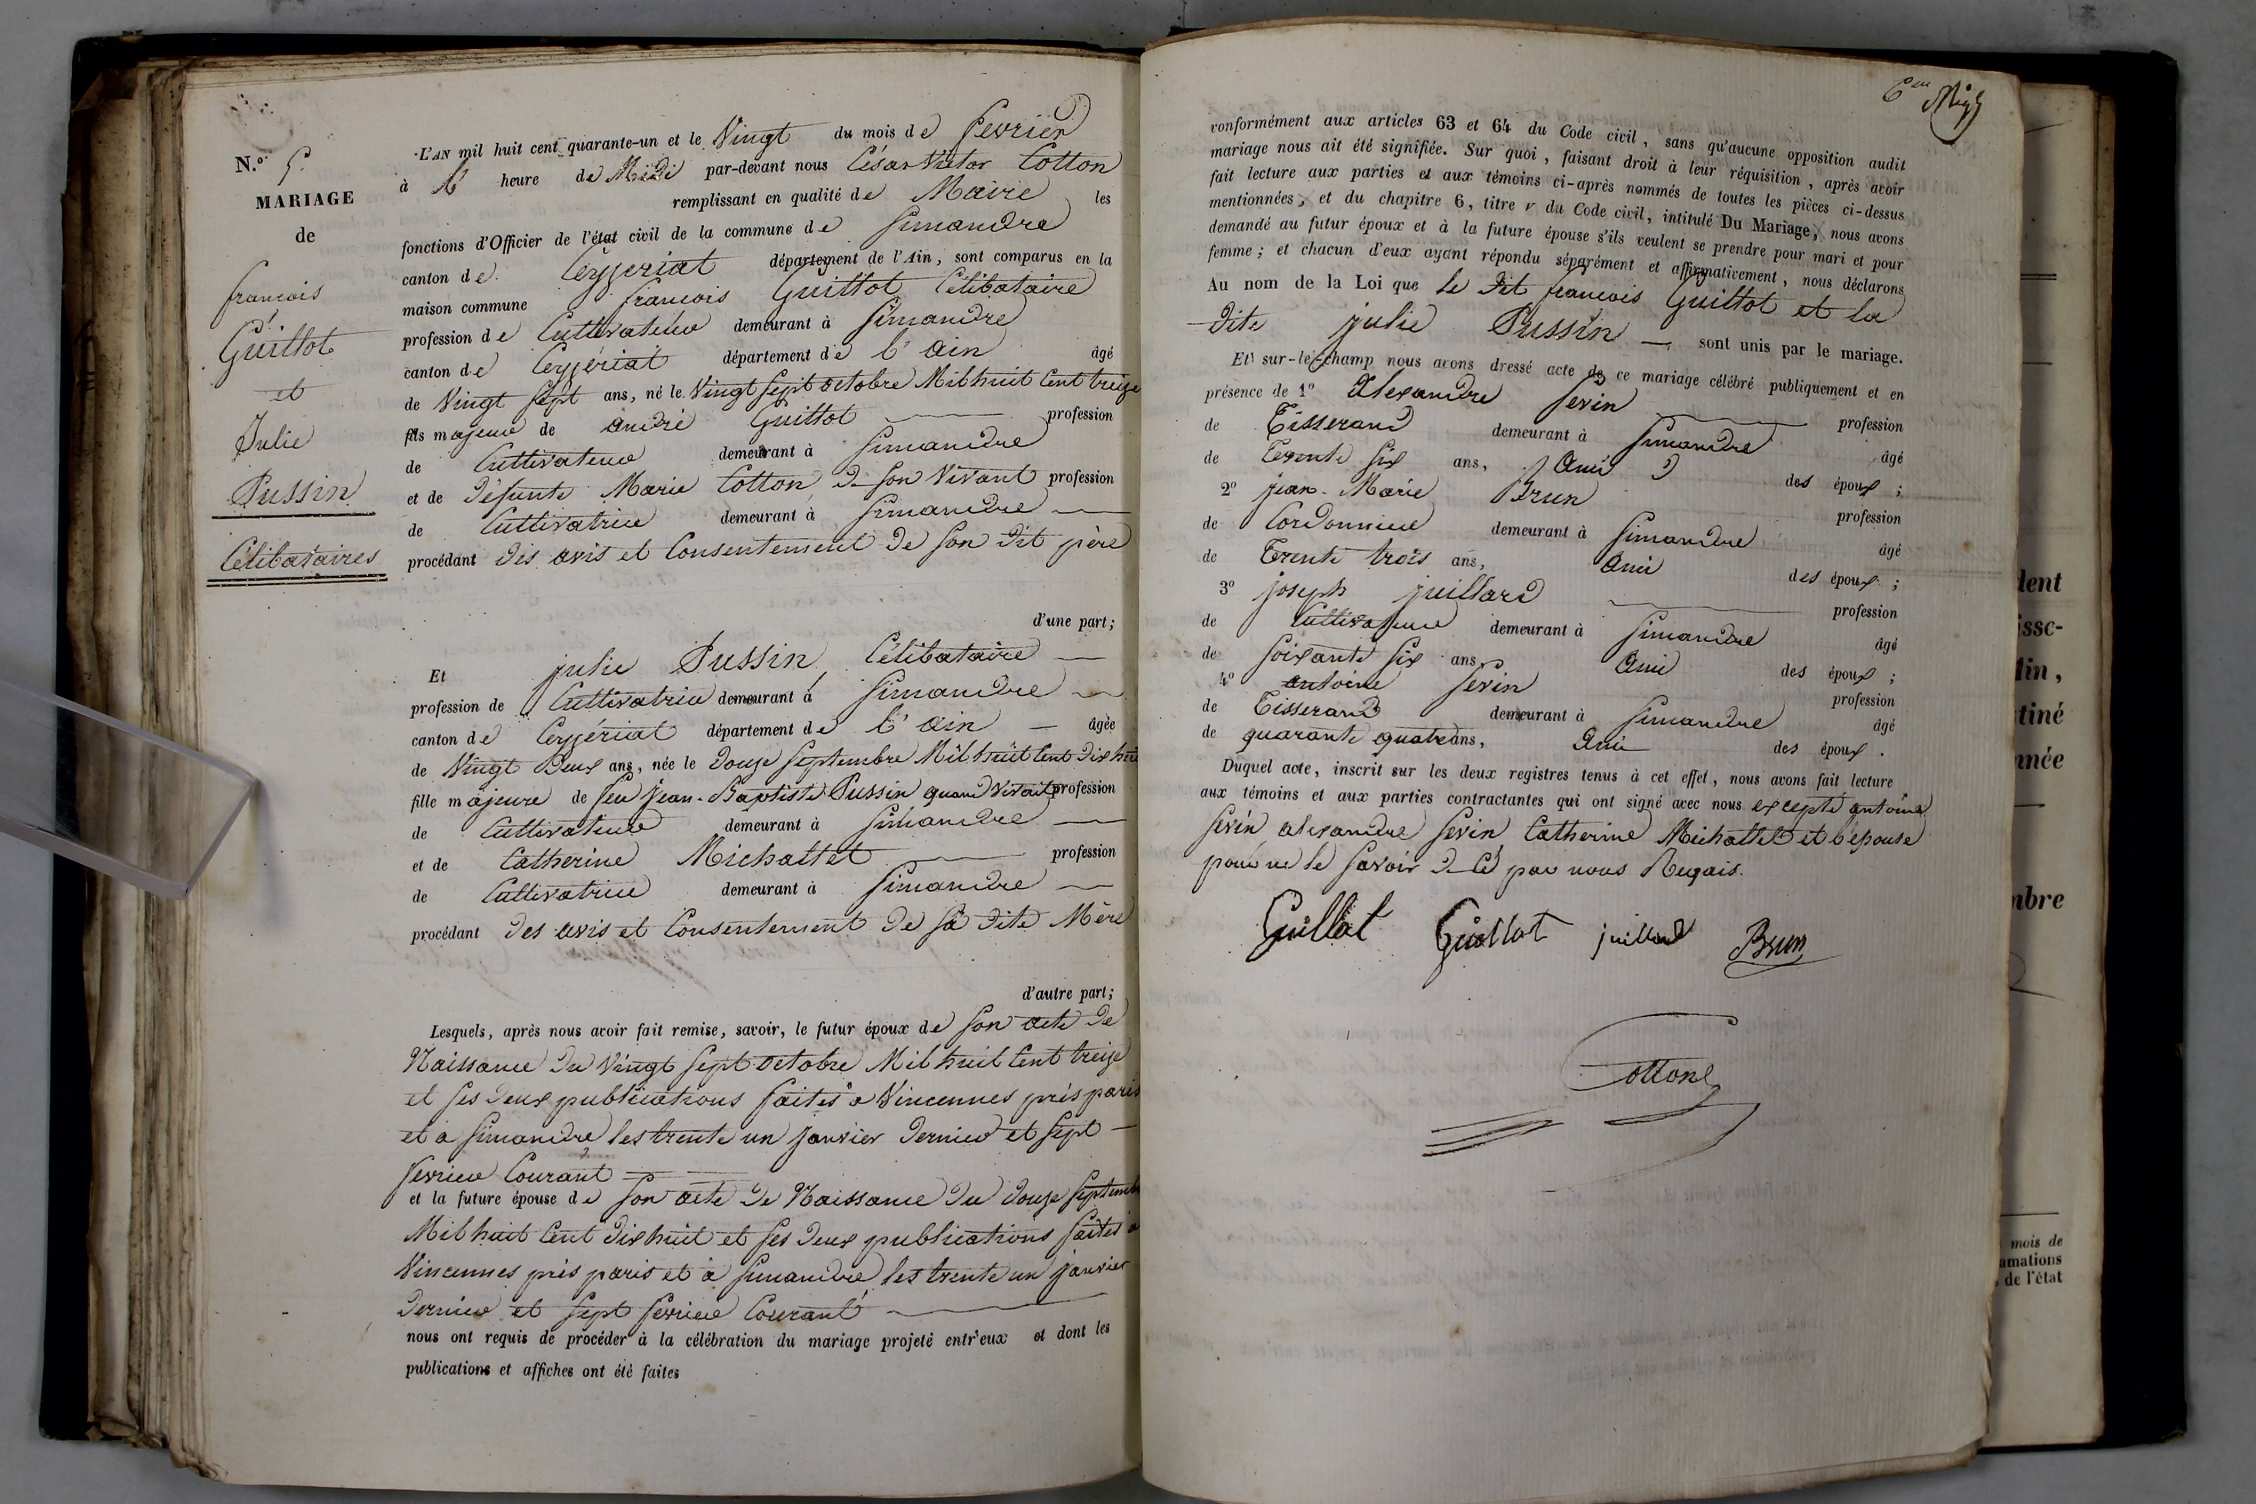 N.º 5.
MARIAGE
de
françois
Guillot
et
Julie
Pussin
Célibataires
L'AN mil huit cent quarante-un et le Vingt du mois de fevrier
à heure de Midi par-devant nous César Victor Cotton
remplissant en qualité de Maire les
fonctions d'Officier de l'état civil de la commune de Simandre
canton de Ceyzeriat département de l'Ain, sont comparus en la
maison commune françois Guillot Célibataire
profession de Cultivateur demeurant à Simandre
canton de Ceyzériat département de l'ain âgé
de Vingt Sept ans, né le Vingt Sept octobre Mil huit Cent treize
fils majeur de andré Guillot profession
de Cultivateur demeurant à Simandre
et de défunte Marie Cotton de Son Vivant profession
de Cultivatrice demeurant à Simandre
procédant des avis et Consentement de Son dit père
d'une part;
Et julie Pussin Célibataire
profession de Cultivatrice demeurant à Simandre
canton de Ceyzériat département de l'ain âgée
de Vingt Deux ans, née le Douze Septembre Mil huit Cent Dix hui
fille majeure de feu Jean-Baptiste Pussin quand Vivait profession
de Cultivateur demeurant à Simandre
et de Catherine Michallet profession
de Cultivatrice demeurant à Simandre
procédant des avis et Consentement de Sa dite Mère
d'autre part;
Lesquels, après nous avoir fait remise, savoir, le futur époux de Son acte de
Naissance du Vingt Sept octobre Mil huit Cent treize
et Ses Deux publications faites a Vincennes près paris
et a Simandre les trente un janvier dernier et Sept
fevrier Courant
et la future épouse de Son acte de Naissance du Douze Septemb
Mil huit Cent Dix huit et Ses Deux publications faites a
Vincennes près paris et à Simandre les trente un janvier
dernier et Sept fevrier Courant
nous ont requis de procéder à la célébration du mariage projeté entr'eux et dont les
publications et affiches ont été faites
6me
conformément aux articles 63 et 64 du Code civil, sans qu'aucune opposition audit
mariage nous ait été signifiée. Sur quoi, faisant droit à leur réquisition, après avoir
fait lecture aux parties et aux témoins ci-après nommés de toutes les pièces ci-dessus
mentionnées, et du chapitre 6, titre v du Code civil, intitulé Du Mariage, nous avons
demandé au futur époux et à la future épouse s'ils veulent se prendre pour mari et pour
femme; et chacun d'eux ayant répondu séparément et affirmativement, nous déclarons
Au nom de la Loi que le dit françois Guillot et la
dite julie Pussin sont unis par le mariage.
Et sur-le-champ nous avons dressé acte de ce mariage célébré publiquement et en
présence de 1º Alexandre Sevin profession
de Tisserand demeurant à Simandre âgé
de Trente Six ans, Ami des époux;
2º jean-Marie Brun profession
de Cordonnier demeurant à Simandre âgé
de Trente trois ans, Ami des époux;
3º joseph juillard profession
de Cultivateur demeurant à Simandre âgé
de Soixante Six ans, Ami des époux;
4º antoine Sevin profession
de Tisserand demeurant à Simandre âgé
de quarante quatre ans, Ami des époux.
Duquel acte, inscrit sur les deux registres tenus à cet effet, nous avons fait lecture
aux témoins et aux parties contractantes qui ont signé avec nous excepté antoine
Sevin alexandre Sevin Catherine Michallet et l'épouse
pour ne le Savoir de Cé par nous Requis.
Guillot Guillot juillard Brun
Cotton
dent
isse-
Ain,
tiné
nnée
mbre
mois de
amations
de l'état